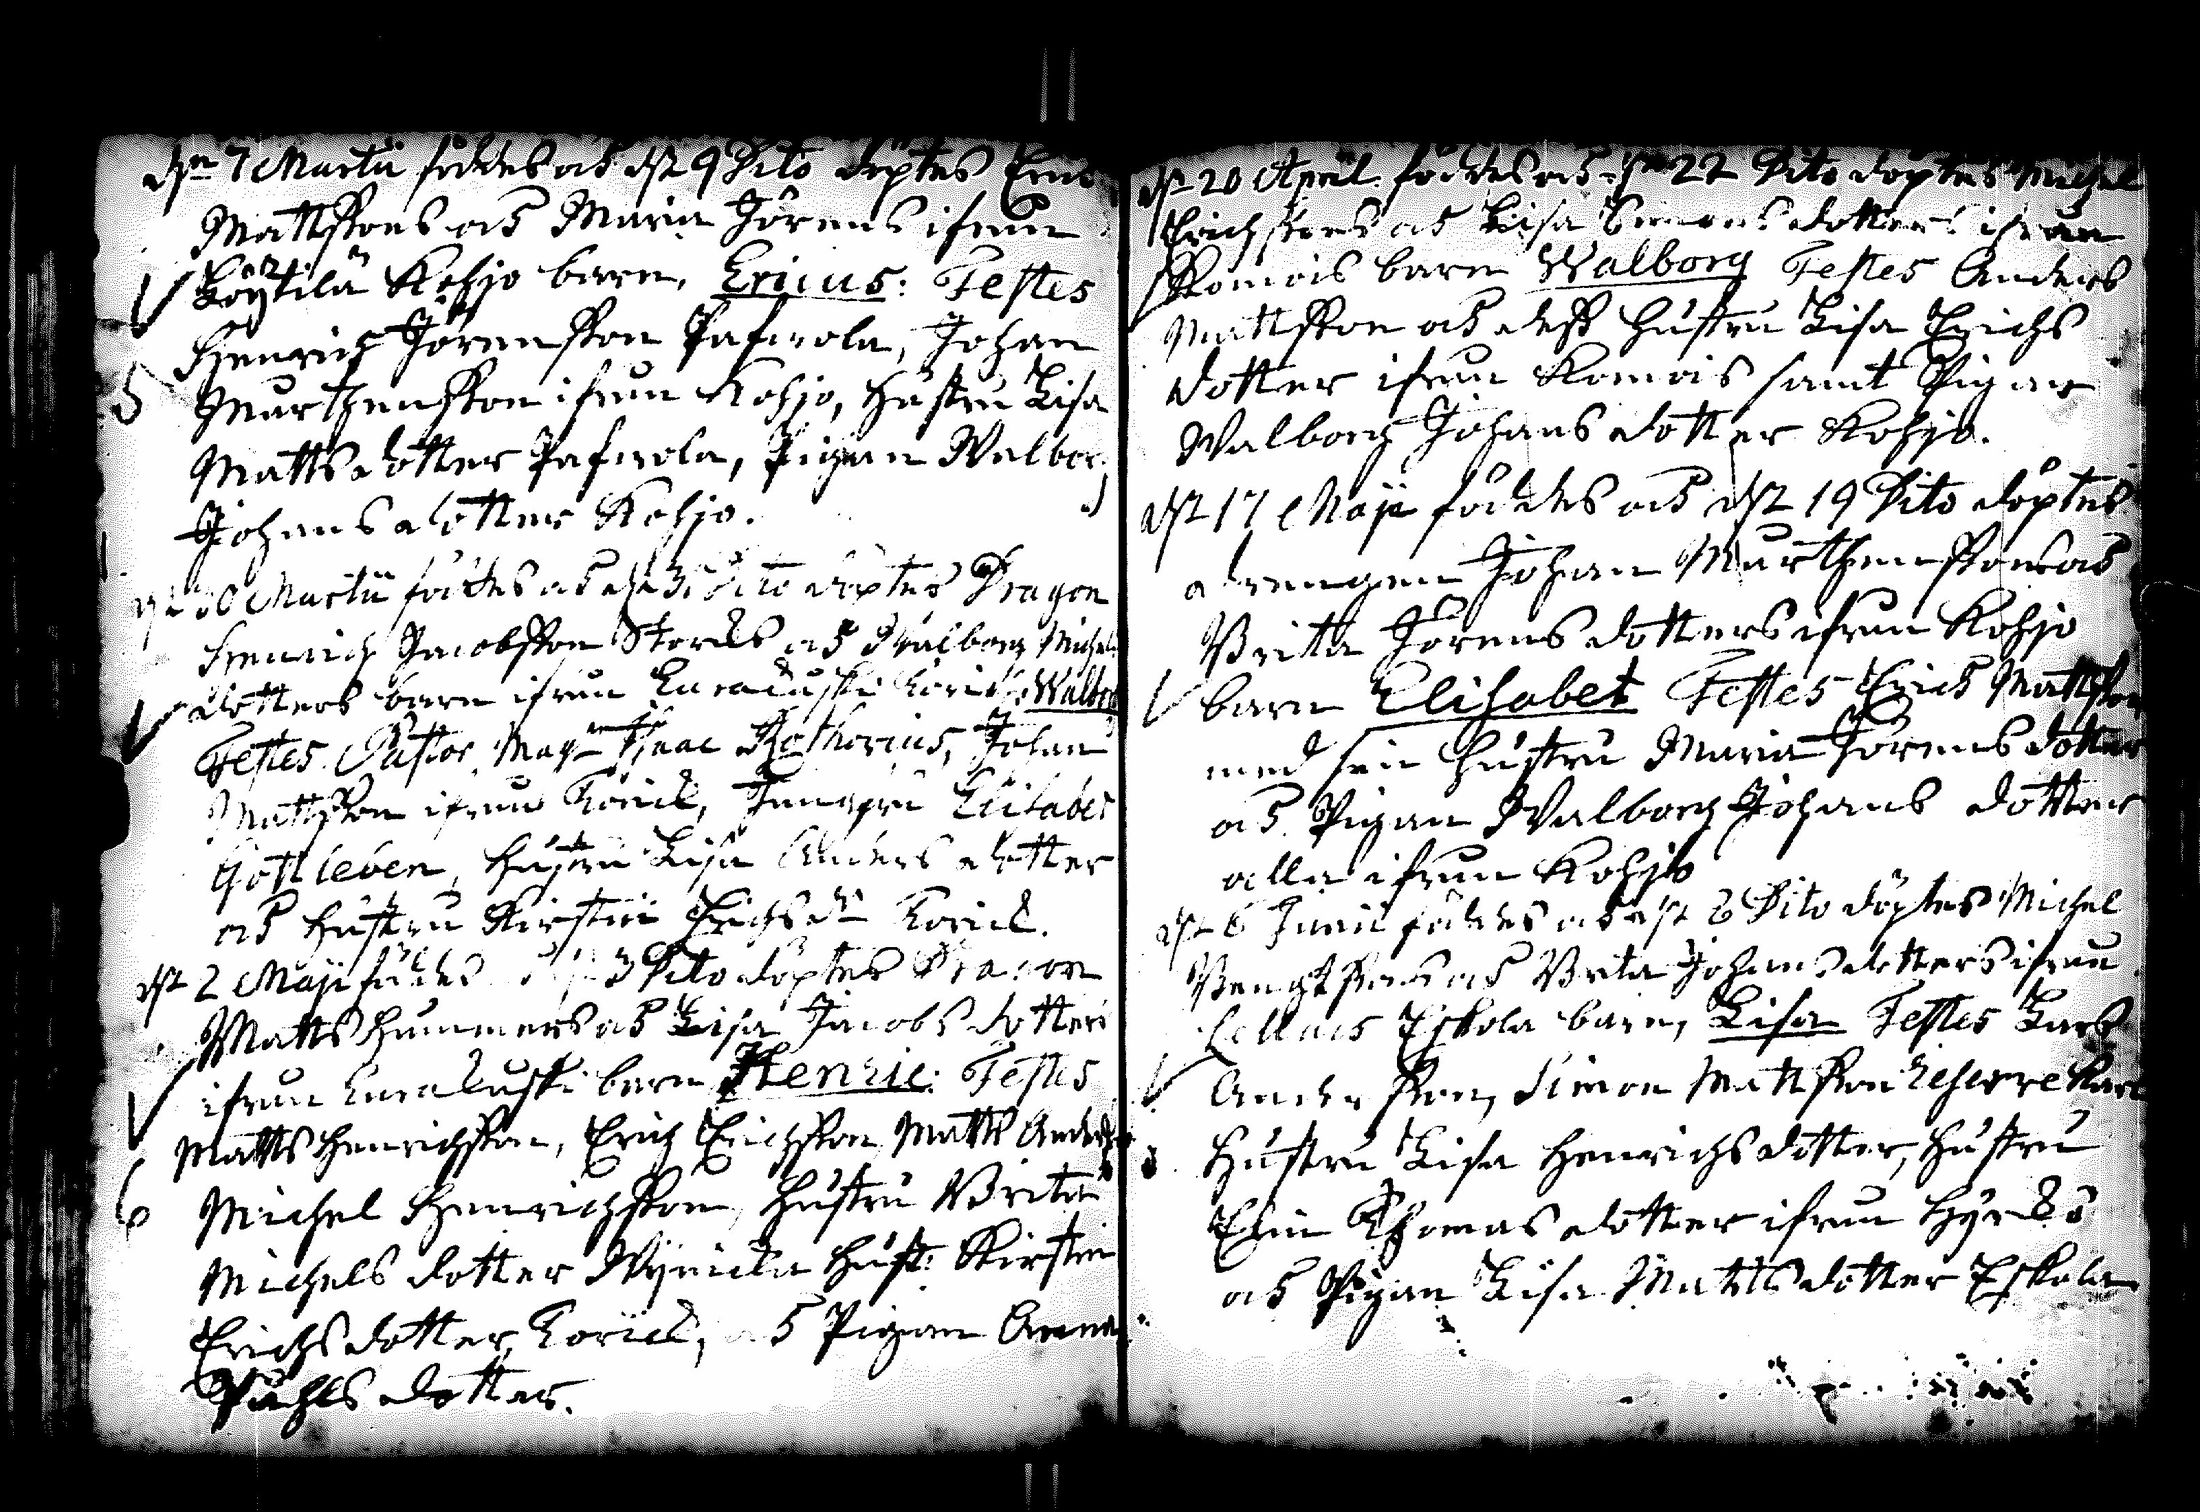 dn 7 Martii föddes och dn 9 Dito döptes Erich
Mattssons och Maria Jörens ifrån
Köytilä Kohjo barn, Ericus: Testes
Henrich Jörensson Pafwola, Johan
5 Marthensson ifrån Kohjo, Hustru Lisa
Mattsdotter Pafwola, Pigan Walborg
Johans dotter Kohjo.
Martii föddes och Dito döptes Dragon
Henrich Jacobsson Storcks och Walborg Michels
dotters barn ifrån Walborg
Testes Pastor Mag Isaac Rothovius, Johan
Mattsson ifrån Jungfru Elisabet
Gottleben, Hustru Lisa Anders dotter
och Hustru Kirstin Erichs dtr
dn 2 Maji föddes 3 Dito döptes Dragon
Matts Hummers och Lisa Jacobs dotters
ifrån barn Henric: Testes
Matts Henrichsson, Erich Erichsson Matts
6 Michel Henrichsson, Hustru Brita
Michels dotter Hust: Kirstin
Erichs dotter och Pigan Anna
Påhls dotter.
dn 20 April föddes och dn 22 Dito döptes Michel
Erichssons och Lisa Simons dotters ifrån
Komois barn Walborg Testes Anders
Mattsson och dess Hustru Lisa Erichs
dotter ifrån Komois samt Pigan
Walborg Johans dotter Kohjo.
dn 17 Maji föddes och dn 19 Dito döptes
drengen Johan Marthenssons och
Brita Jörens dotters ifrån Kohjo
barn Elisabet Testes Erich Mattsson
med sin Hustru Maria Jörens dotter
och Pigan Walborg Johans dotter
alla ifrån Kohjo
dn 6 Junii föddes och dn 8 Dito döptes Michel
Bengtssons och Brita Johans dotters ifrån
Eskola barn, Lisa Testes Lars
Andersson, Simon Mattsson
Hustru Lisa Henrichs dotter, Hustru
Elin Thomas dotter ifrån
och Pigan Lisa Matts dotter Eskola